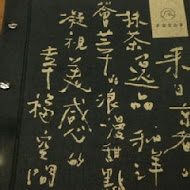 來自京都的
抹茶逸品 和洋
薈萃の浪漫甜點
凝祖美感心的
幸福空間